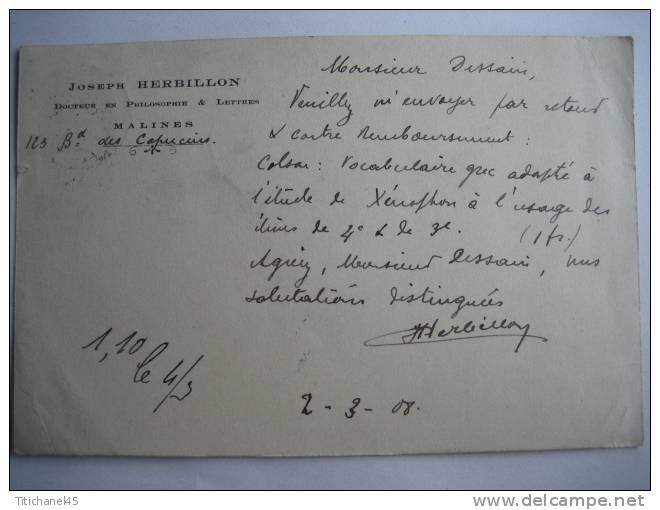 JOSEPH HERBILLON
DOCTEUR EN PHILOSOPHIE & LETTRES
MALINES
123 Bd des Capucins.
Monsieur Dessain,
Veuillez m'envoyer par retour
& contre remboursement :
Colson : Vocabulaire grec adapté à
l'étude de Xénophon à l'usage des
élèves de 4e & de 3e. (1 fr.)
Agréez, Monsieur Dessain, mes
salutations distinguées
JHerbillon
1,10
le 4/3
2 - 3 - 08.
Titichane45
www.delcampe.net